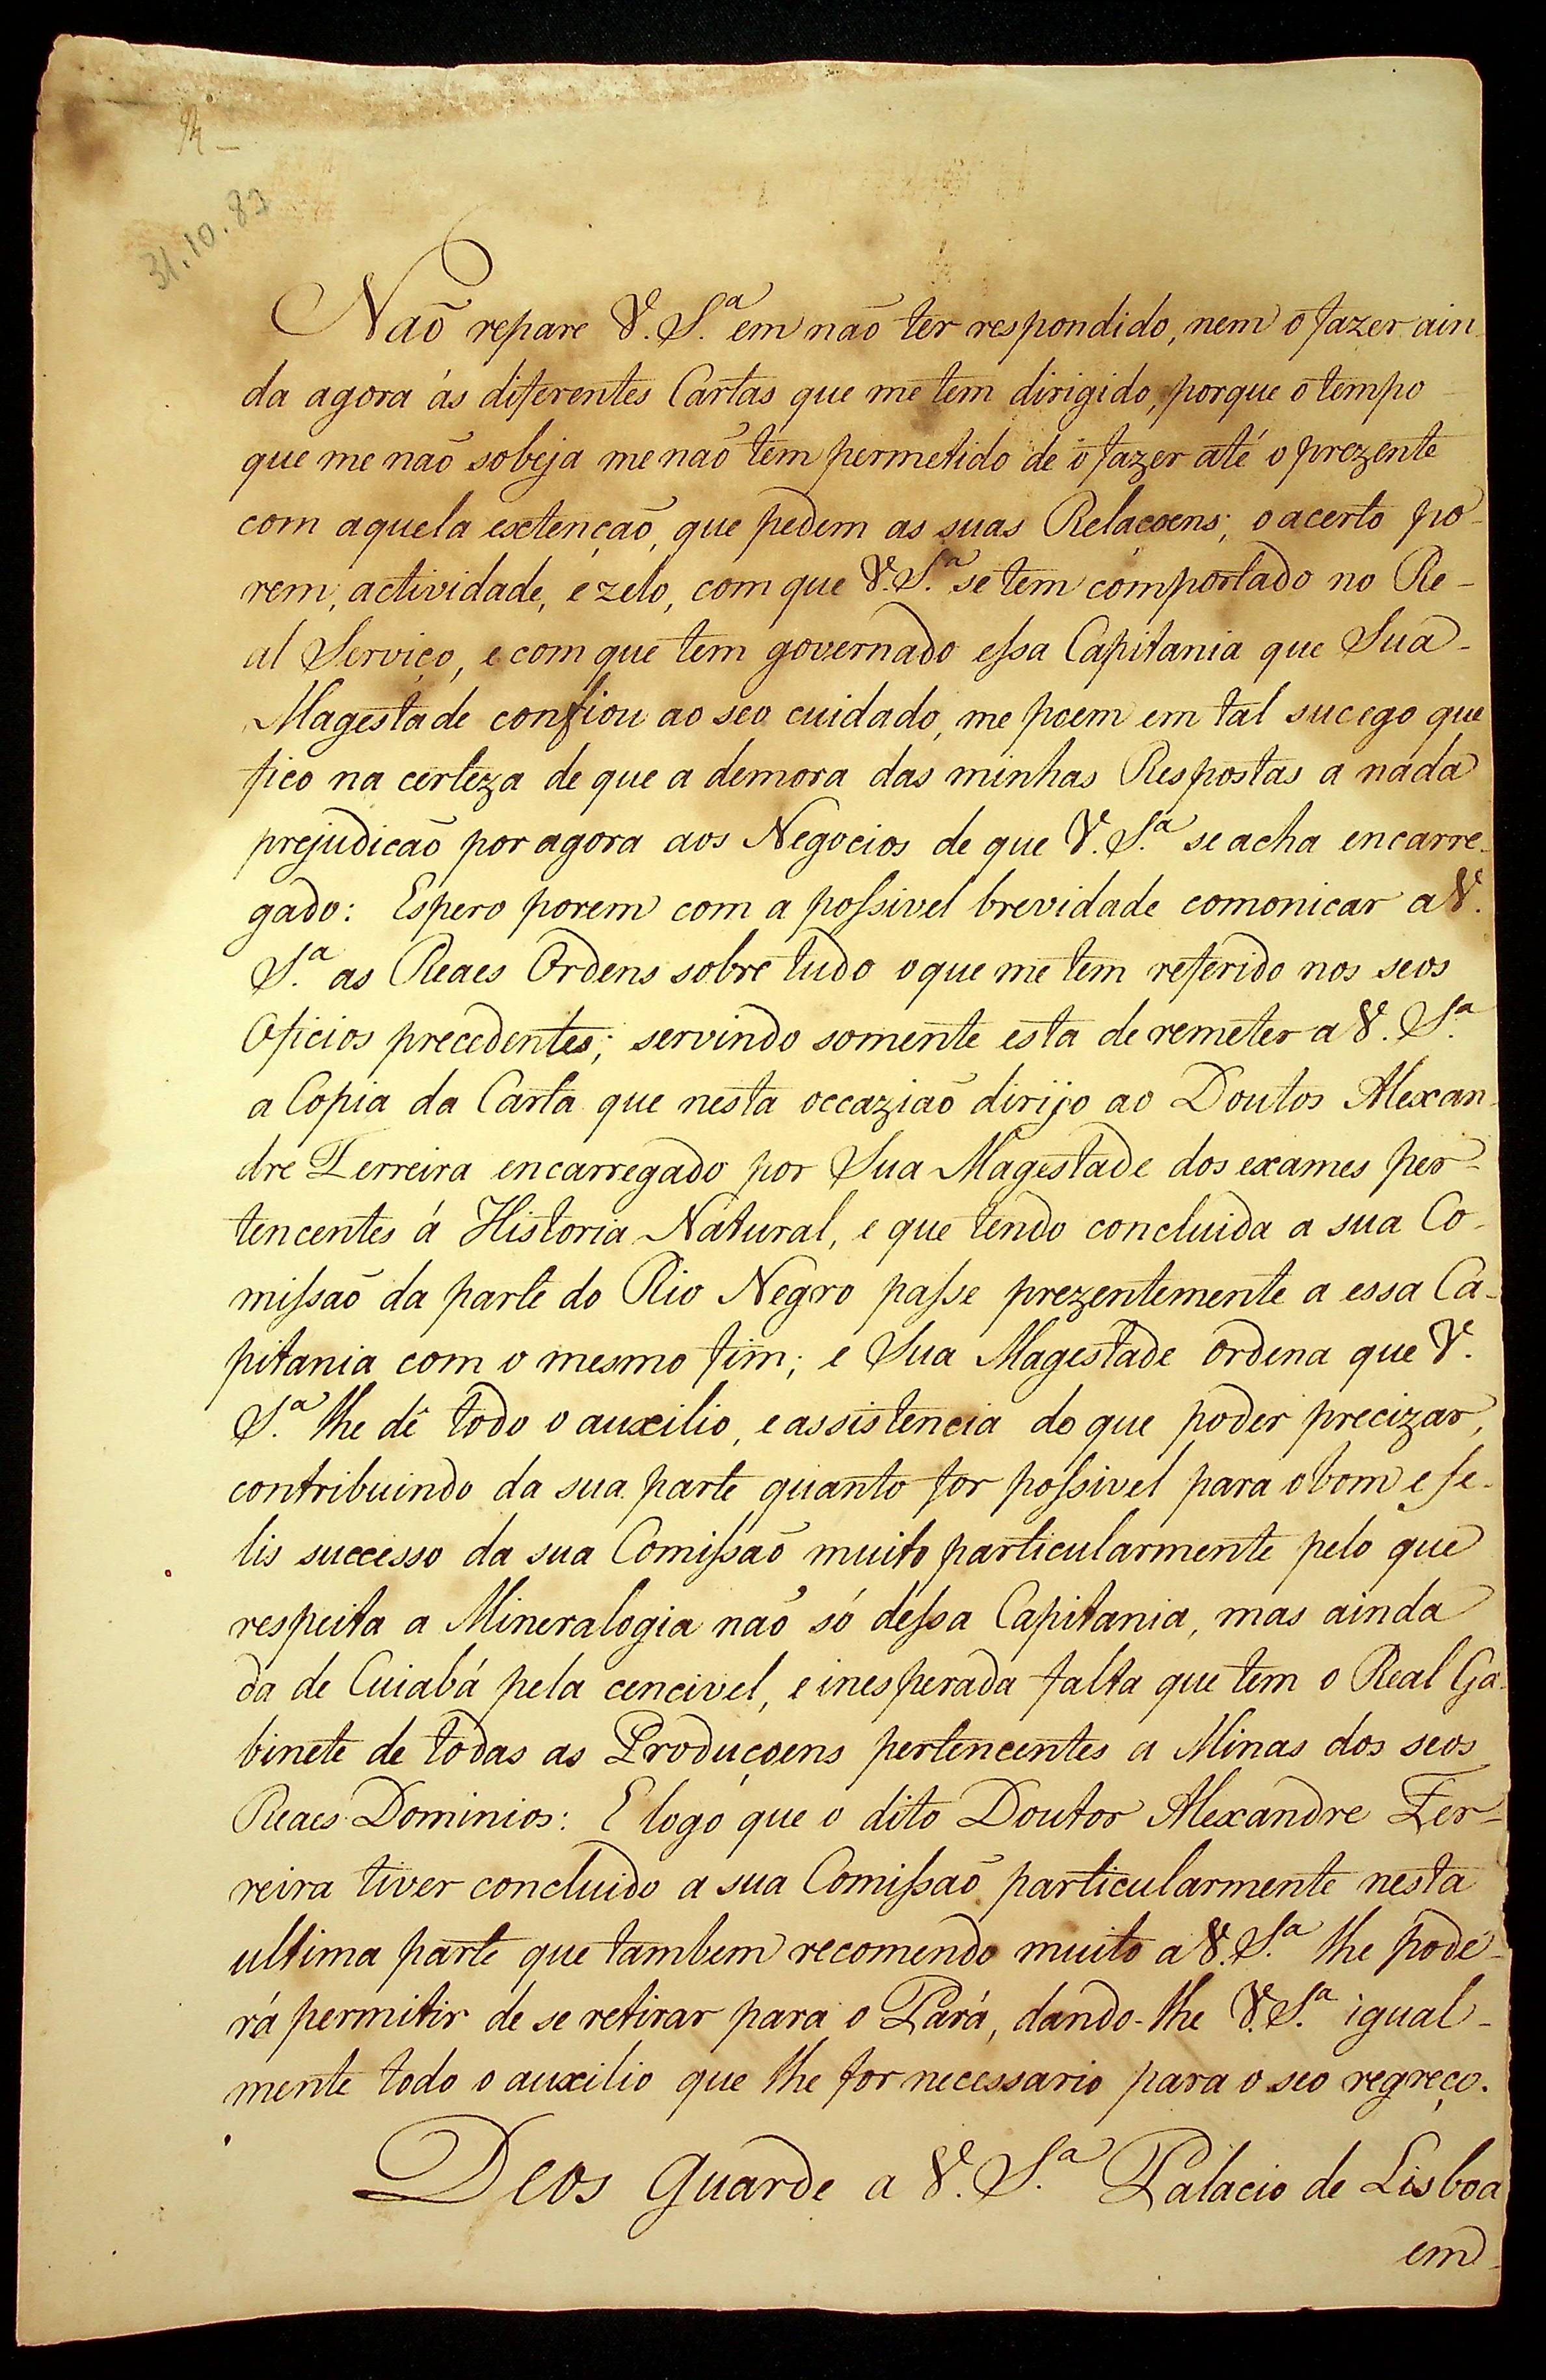 31.10.87
Naõ repare V. S.ª em naõ ter respondido, nem o fazer ain-
da agora ás diferentes Cartas que me tem dirigido, porque o tempo
que me naõ sobeja me naõ tem permetido de o fazer até o prezente
com aquela extençaõ, que pedem as suas Relacoens; o acerto po-
rem, actividade, e zelo, com que V. S.ª se tem comportado no Re-
al Serviço, e com que tem governado essa Capitania que Sua
Magestade confiou ao seo cuidado, me poem em tal sucego que
fico na certeza de que a demora das minhas Respostas a nada
prejudicaõ por agora aos Negocios de que V. S.ª se acha encarre-
gado: Espero porem com a possivel brevidade comonicar a V.
S.ª as Reaes Ordens sobre tudo o que me tem referido nos seos
Oficios precedentes; servindo somente esta de remeter a V. S.ª
a Copia da Carta que nesta occaziaõ dirijo ao Doutor Alexan-
dre Ferreira encarregado por Sua Magestade dos exames per-
tencentes á Historia Natural, e que tendo concluida a sua Co-
missaõ da parte do Rio Negro passe prezentemente a essa Ca-
pitania com o mesmo fim; e Sua Magestade ordena que V.
S.ª lhe dê todo o auxilio, e assistencia do que poder precizar,
contribuindo da sua parte quanto for possivel para o bom e fe-
lis successo da sua Comissaõ muito particularmente pelo que
respeita a Mineralogia naõ só dessa Capitania, mas ainda
da de Cuiabá pela cencivel, e inesperada falta que tem o Real Ga-
binete de todas as Produçoens pertencentes a Minas dos seos
Reaes Dominios: E logo que o dito Doutor Alexandre Fer-
reira tiver concluido a sua Comissaõ particularmente nesta
ultima parte que tambem recomendo muito a V. S.ª lhe pode-
rá permitir de se retirar para o Pará, dando-lhe V. S.ª igual-
mente todo o auxilio que lhe for necessario para o seo regreço.
Deos Guarde a V. S.ª Palacio de Lisboa
em